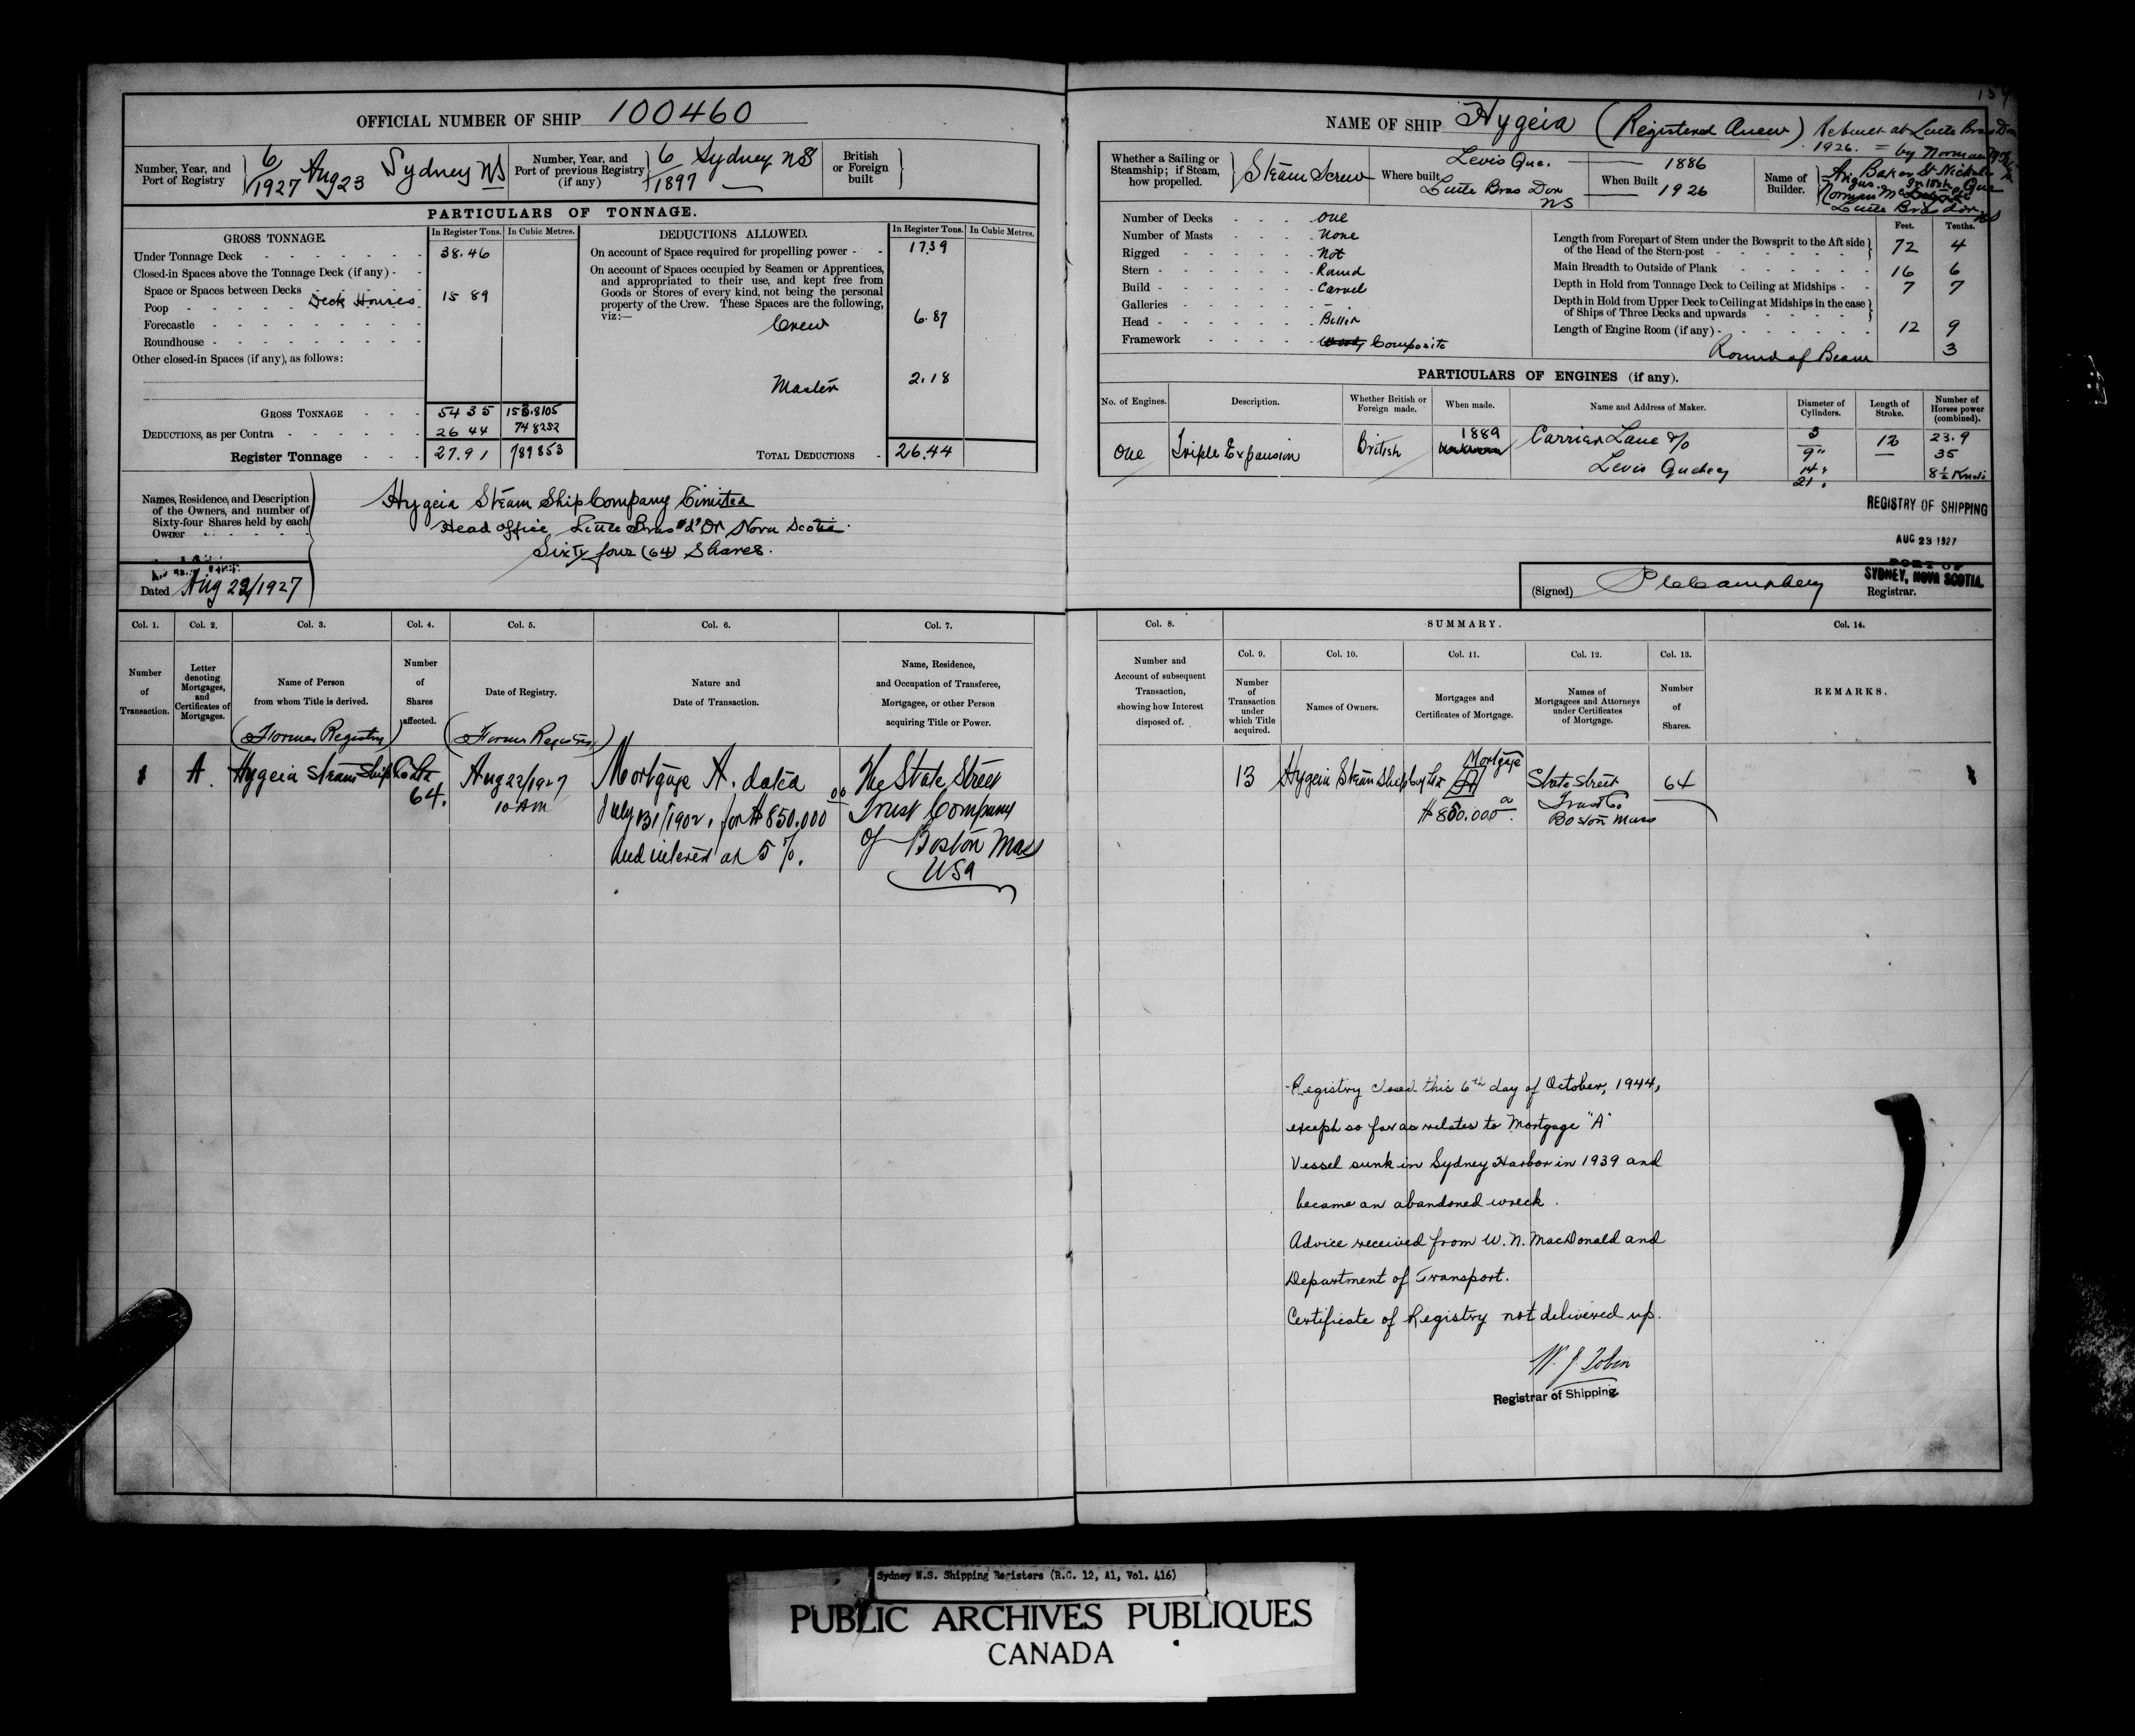 OFFICIAL NUMBER OF SHIP 100460
Number, Year, and Port of Registry 6/1927 Aug 23 Sydney NS
Number, Year, and Port of previous Registry (if any) 6/1897 Sydney NS
British or Foreign built
PARTICULARS OF TONNAGE.
GROSS TONNAGE. In Register Tons. In Cubic Metres.
Under Tonnage Deck 38.46
Closed-in Spaces above the Tonnage Deck (if any)
Space or Spaces between Decks
Poop Deck Houses 15 89
Forecastle
Roundhouse
Other closed-in Spaces (if any), as follows:
GROSS TONNAGE 54 35 153.8105
DEDUCTIONS, as per Contra 26 44 74 8252
Register Tonnage 27.91 789853
DEDUCTIONS ALLOWED. In Register Tons. In Cubic Metres.
On account of Space required for propelling power 17.39
On account of Spaces occupied by Seamen or Apprentices,
and appropriated to their use, and kept free from
Goods or Stores of every kind, not being the personal
property of the Crew. These Spaces are the following,
viz:—
Crew 6.87
Master 2.18
TOTAL DEDUCTIONS 26.44
Names, Residence, and Description
of the Owners, and number of
Sixty-four Shares held by each
Owner
Hygeia Steam Ship Company Limited
Head office Little Bras d'Or Nova Scotia.
Sixty four (64) Shares.
Dated Aug 22/1927
NAME OF SHIP Hygeia (Registered Anew) Rebuilt at Little Bras Dor
1926. = by Norman
Whether a Sailing or Steamship; if Steam, how propelled. Steam Screw
Where built Levis Que.
Little Bras Dor NS
When Built 1886
1926
Name of Builder.
Number of Decks one
Number of Masts None
Rigged Not
Stern Round
Build Carvel
Galleries -
Head Billet
Framework Composite
Feet. Tenths.
Length from Forepart of Stem under the Bowsprit to the Aft side of the Head of the Stern-post 72 4
Main Breadth to Outside of Plank 16 6
Depth in Hold from Tonnage Deck to Ceiling at Midships 7 7
Depth in Hold from Upper Deck to Ceiling at Midships in the case of Ships of Three Decks and upwards
Length of Engine Room (if any) 12 9
Round of Beam 3
PARTICULARS OF ENGINES (if any).
No. of Engines. Description. Whether British or Foreign made. When made. Name and Address of Maker. Diameter of Cylinders. Length of Stroke. Number of Horses power (combined).
One Triple Expansion British 1889 Carrier Lane & Co
Levis Quebec
3
9"
14"
21"
12
23.9
35
8½ Knots
REGISTRY OF SHIPPING
AUG 23 1927
PORT OF
SYDNEY, NOVA SCOTIA.
(Signed)
Registrar.
Col. 1. Col. 2. Col. 3. Col. 4. Col. 5. Col. 6. Col. 7.
Number of Transaction.
Letter denoting Mortgages, and Certificates of Mortgages.
Name of Person from whom Title is derived.
Number of Shares affected.
Date of Registry.
Nature and Date of Transaction.
Name, Residence, and Occupation of Transferee, Mortgagee, or other Person acquiring Title or Power.
(Former Registry) (Former Registry)
1 A. Hygeia Steam Ship Co Ltd 64.
Aug 22/1927
10 AM
Mortgage A. dated
July 31/1902, for $850.000 00
and interest at 5%.
The State Street
Trust Company
of Boston Mass
USA
Col. 8. SUMMARY. Col. 14.
Col. 9. Col. 10. Col. 11. Col. 12. Col. 13.
Number and Account of subsequent Transaction, showing how Interest disposed of.
Number of Transaction under which Title acquired.
Names of Owners.
Mortgages and Certificates of Mortgage.
Names of Mortgagees and Attorneys under Certificates of Mortgage.
Number of Shares.
REMARKS.
13 Hygeia Steam Ship Coy Ltd
Mortgage
A
$850.000
State Street
Trust Co.
Boston Mass
64
Registry closed this 6th day of October, 1944,
except so far as relates to Mortgage "A"
Vessel sunk in Sydney Harbor in 1939 and
became an abandoned wreck.
Advice received from W. N. MacDonald and
Department of Transport.
Certificate of Registry not delivered up.
W. J. Tobin
Registrar of Shipping
Sydney N.S. Shipping Registers (R.G. 12, A1, Vol. 416)
PUBLIC ARCHIVES PUBLIQUES
CANADA